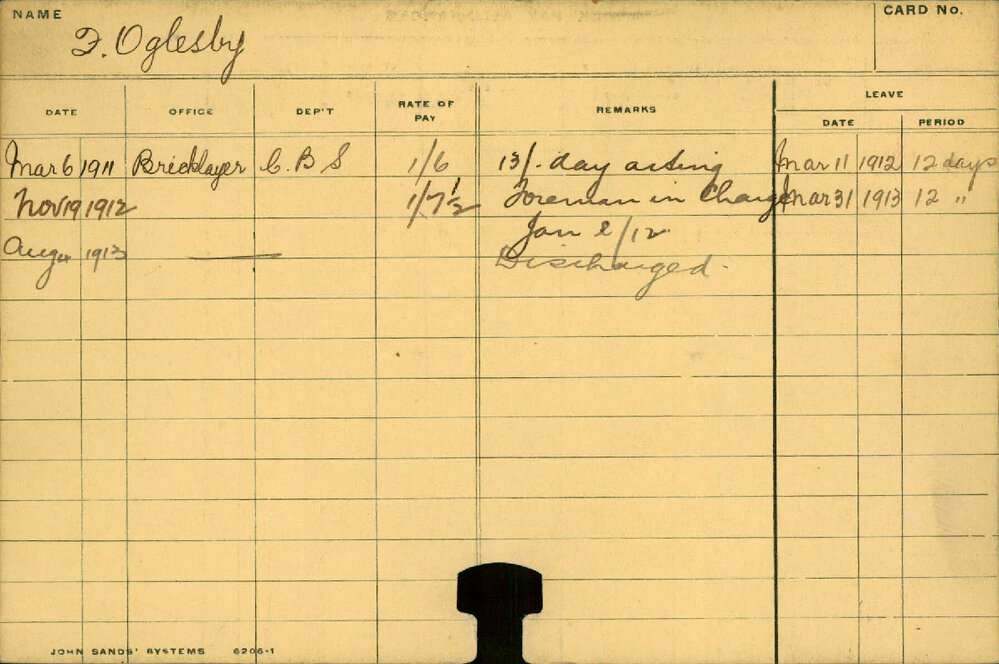 NAME
F. Oglesby
CARD No.
DATE OFFICE DEP'T RATE OF PAY REMARKS LEAVE
DATE PERIOD
Mar 6 1911 Bricklayer C. B S 1/6 13/- day acting Mar 11 1912 12 days
Nov 19 1912 1/7½ Foreman in Charge Mar 31 1913 12 "
Jan 2/12
Aug 4 1913 Discharged.
JOHN SANDS' SYSTEMS 6206-1